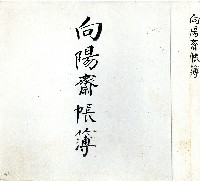 向陽齋帳簿
向陽齋帳簿